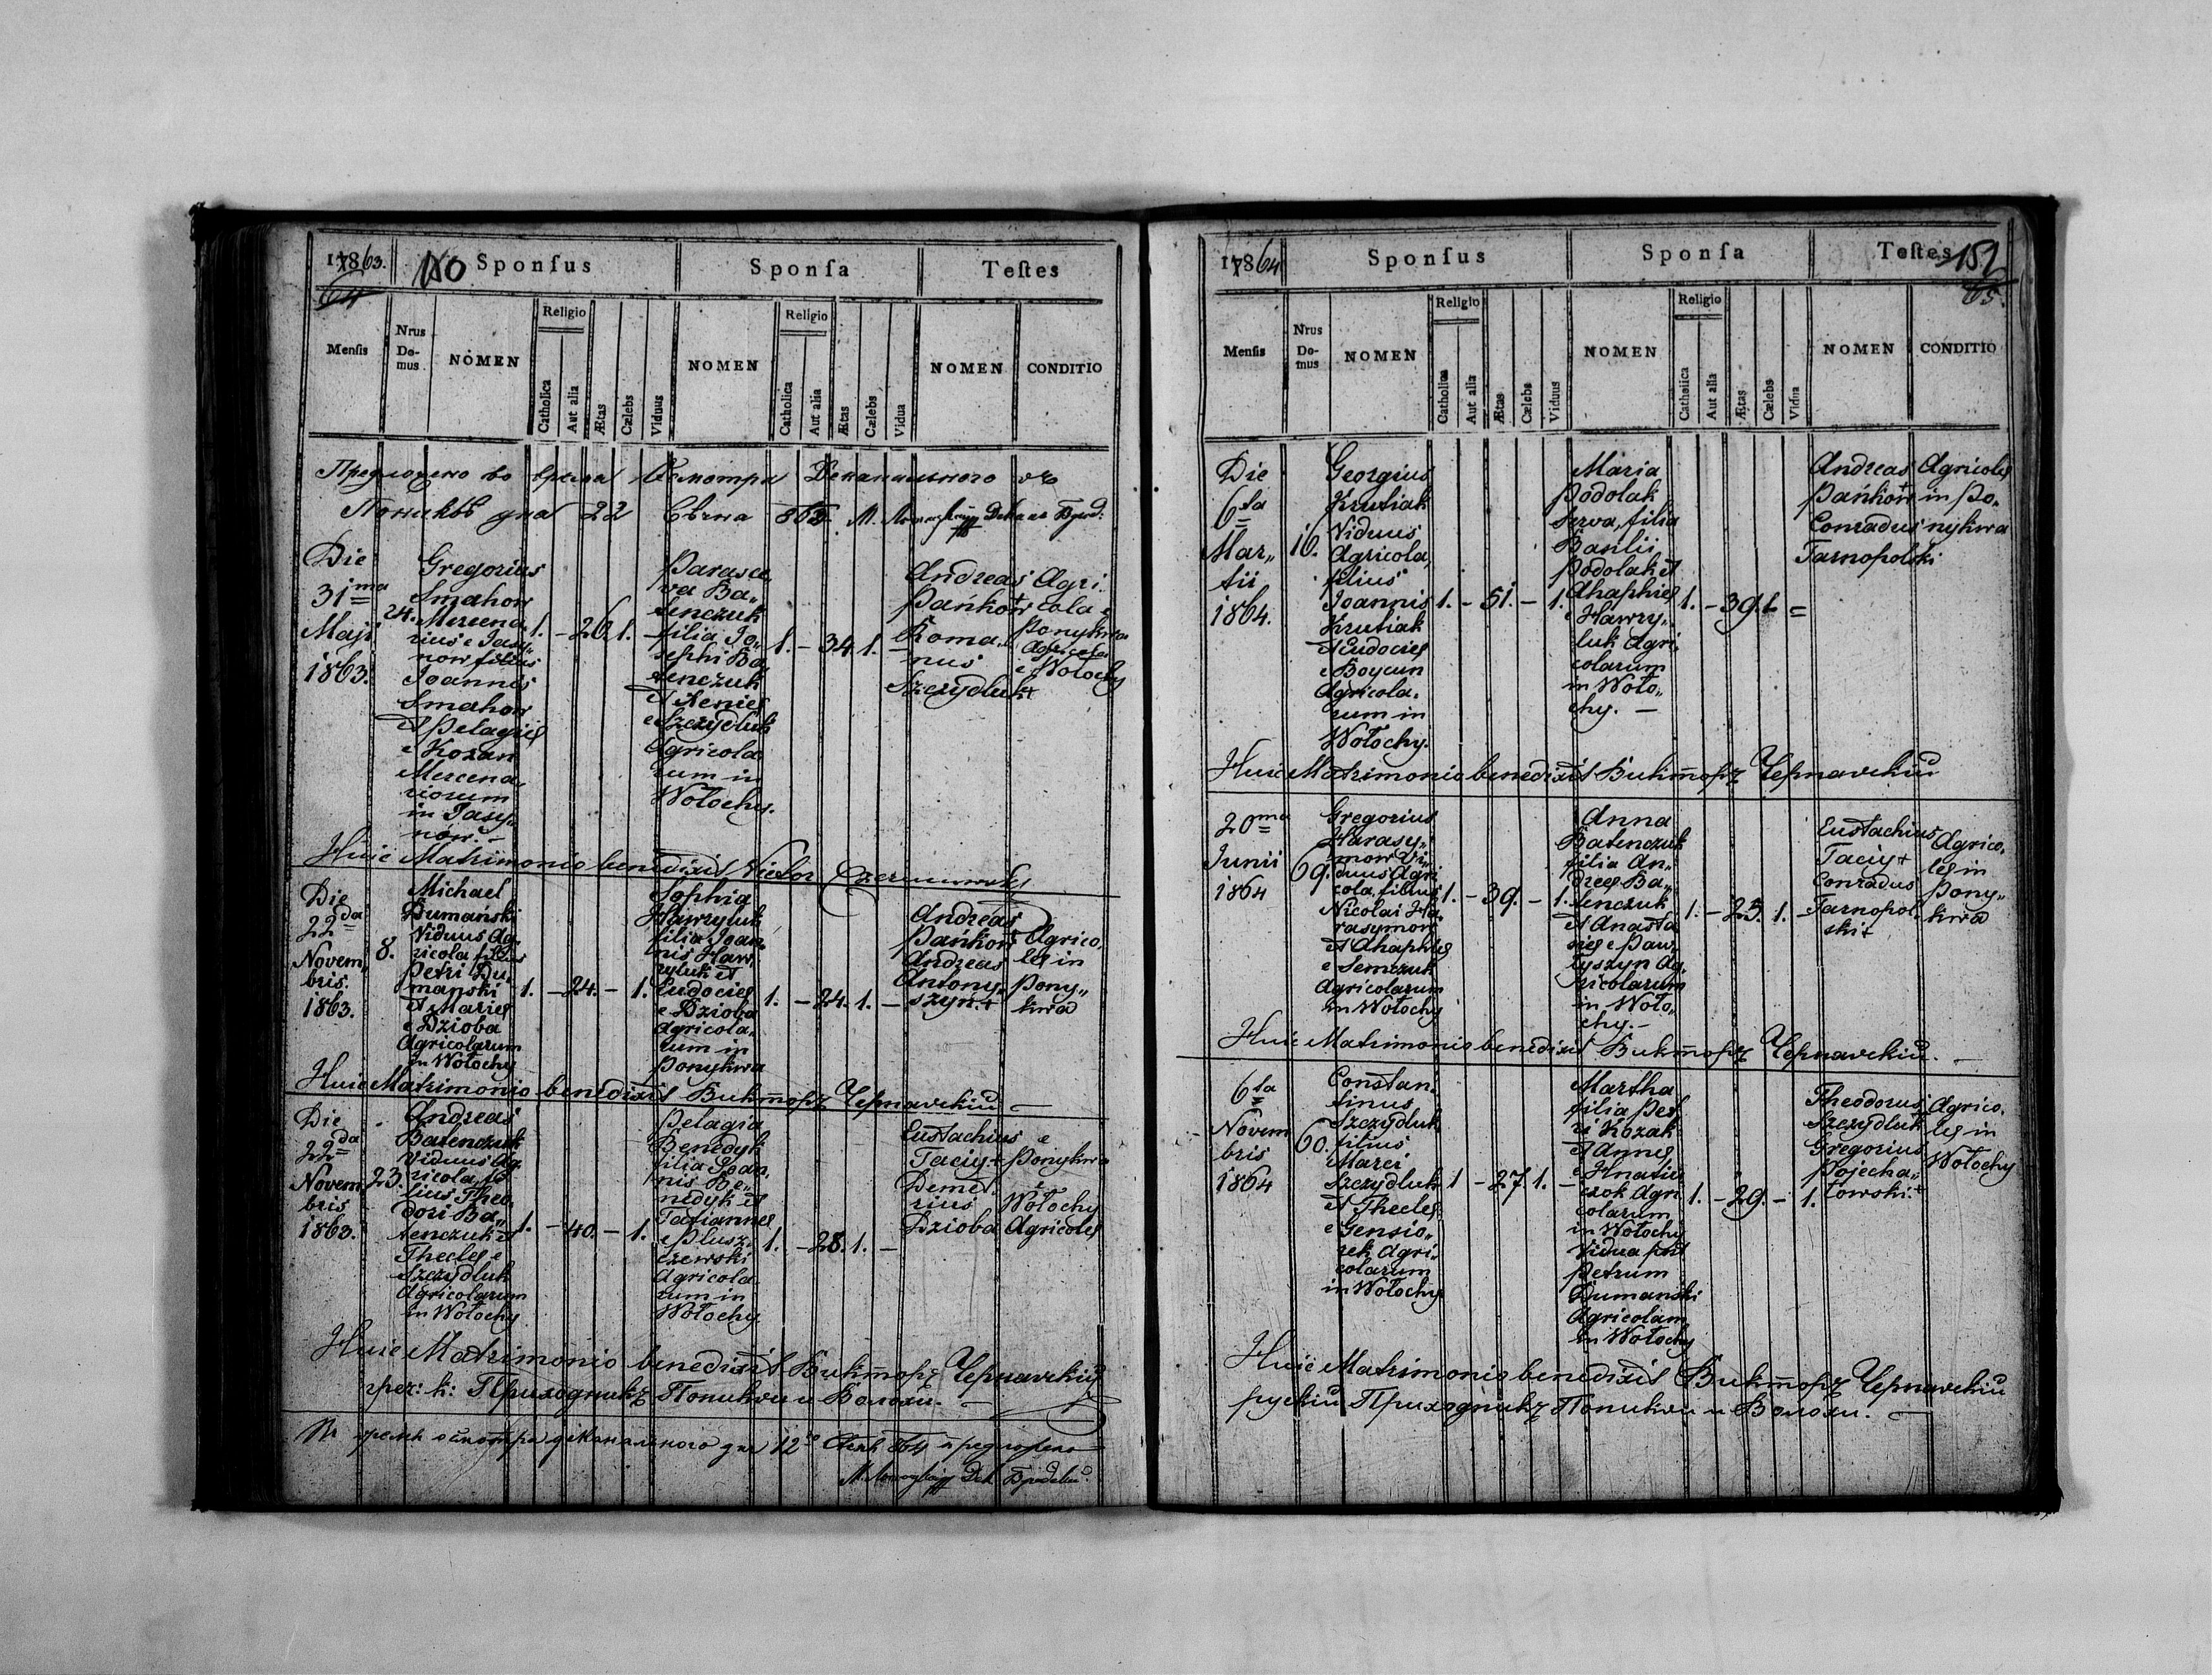 1863. 150 Sponsus Sponsa Testes
64
Mensis Nrus Domus NOMEN Religio Catholica Aut alia Ætas Cælebs Viduus NOMEN Religio Catholica Aut alia Ætas Cælebs Vidua NOMEN CONDITIO
Предложено во время Деканального
Дня 22
Die
31ma
Maji
1863.
24.
Gregorius
Smahow
Mercena
rius e Jasy„
now filius
Joannis
Smahow
et Pelagiæ
e Kozan
Mercena„
riorum
in Jasy„
nów.
1. – 26. 1. –
Parasce„
va Ba„
tenczuk
filia Jo„
sephi Ba„
tenczuk
et Xeniæ
e Szczydluk
Agricola„
rum in
Wołochy.
1. – 34. 1. –
Andreas
Pańkow+
Roma„
nus
Szczydluk+
Agri„
cola e
Ponykwa
Agricola
e Wołochy
Huic Matrimonio benedixit Victor
Die
22da
Novem„
bris.
1863.
8.
Michael
Dumański
Viduus Ag„
ricola filius
Petri Du„
manski
et Mariæ
e Dzioba
Agricolarum
in Wołochy
1. – 24. – 1.
Sophia
Hawryluk
filia Joan„
nis Haw„
ryluk et
Eudociæ
e Dzioba
Agricola„
rum in
Ponykwa
1. – 24. 1. –
Andreas
Pańkow+
Andreas
Antony„
szyn.+
Agrico„
læ in
Pony„
kwa
Huic Matrimonio benedixit Викторъ Чернавскій
Die
22da
Novem„
bris
1863.
23.
Andreas
Batenczuk
Viduus Ag„
ricola, fi„
lius Theo„
dori Ba„
tenczuk et
Theclæ e
Szczydluk
Agricolarum
in Wołochy
1. – 40. – 1.
Pelagia
Benedyk
filia Joan„
nis Be„
nedyk et
Tatiannæ
e Plusz„
czewski
Agricola„
rum in
Wołochy
1. – 28. 1. –
Eustachius
Taciy+
Demet„
rius
Dzioba
e
Ponykwa
+
Wołochy
Agricolæ
Huic Matrimonio benedixit Викторъ Чернавскій
грег: к: Приходникъ Поникви и Волохи.
дня 12
1864 Sponsus Sponsa Testes 151
65.
Mensis Nrus Domus NOMEN Religio Catholica Aut alia Ætas Cælebs Viduus NOMEN Religio Catholica Aut alia Ætas Cælebs Vidua NOMEN CONDITIO
Die
6ta
Mar„
tii
1864.
16.
Georgius
Krutiak
Viduus
Agricola,
filius
Joannis
Krutiak
et Eudociæ
e Boycun
Agricola„
rum in
Wołochy.
1. – 51. – 1.
Maria
Podolak
serva, filia
Basilii
Podolak et
Ahaphiæ
e Hawry„
luk Agri„
colarum
in Woło„
chy. –
1. – 39. 1. =
Andreas
Pańkow+
Conradus
Tarnopolski
Agricolæ
in Po„
nykwa
Huic Matrimonio benedixit Викторъ Чернавскій
20ma
Junii
1864
69.
Gregorius
Harasy„
mow Vi„
duus Agri„
cola, filius
Nicolai Ha„
rasymow
et Ahaphiæ
e Semczuk
Agricolarum
in Wołochy
1. – 39. – 1.
Anna
Batenczuk
filia An„
dreæ Ba„
tenczuk
et Anasta„
siæ e Paw„
łyszyn Ag„
ricolarum
in Woło„
chy. –
1. – 25. 1. –
Eustachius
Taciy+
Conradus
Tarnopol„
ski+
Agrico„
læ in
Pony„
kwa
Huic Matrimonio benedixit Викторъ Чернавскій. –
6ta
Novem
bris
1864
60.
Constan„
tinus
Szczydluk
filius
Marci
Szczydluk
et Theclæ
e Gensio„
rek Agri„
colarum
in Wołochy
1 – 27. 1. –
Martha
filia Pet„
ri Kozak
et Annæ
e Hnatiu
czok Agri
colarum
in Wołochy
Vidua post
Petrum
Dumanski
Agricolam
in Wołochy
1. – 29. – 1.
Theodorus
Szczydluk
Gregorius
Pojecha„
łowski.+
Agrico„
læ in
Wołochy
Huic Matrimonio benedixit Викторъ Чернавскій
рускій Приходникъ Поникви и Волохи. –